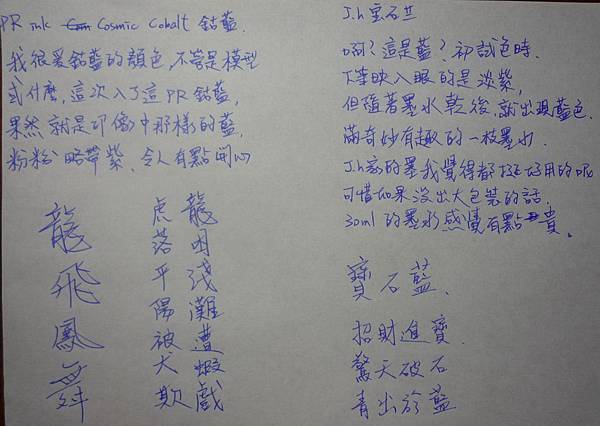 PR ink Cosmic Cobalt 鈷藍.
我很愛鈷藍的顏色,不管是模型
或什麼,這次入了這PR鈷藍,
果然就是印像中那樣的藍,
粉粉略帶紫、令人有點開心
龍飛鳳舞
龍困淺灘遭蝦戲
虎落平陽被犬欺
J.h 宝石藍
啊?這是藍?初試色時.
下筆映入眼的是淡紫,
但隨著墨水乾後,就出現藍色.
滿奇妙有趣的一枝墨水.
J.h家的墨我覺得都挺好用的呢
可惜如果沒出大包裝的話.
30ml 的墨水感覺有點貴。
寶石藍.
招財進寶.
驚天破石
青出於藍